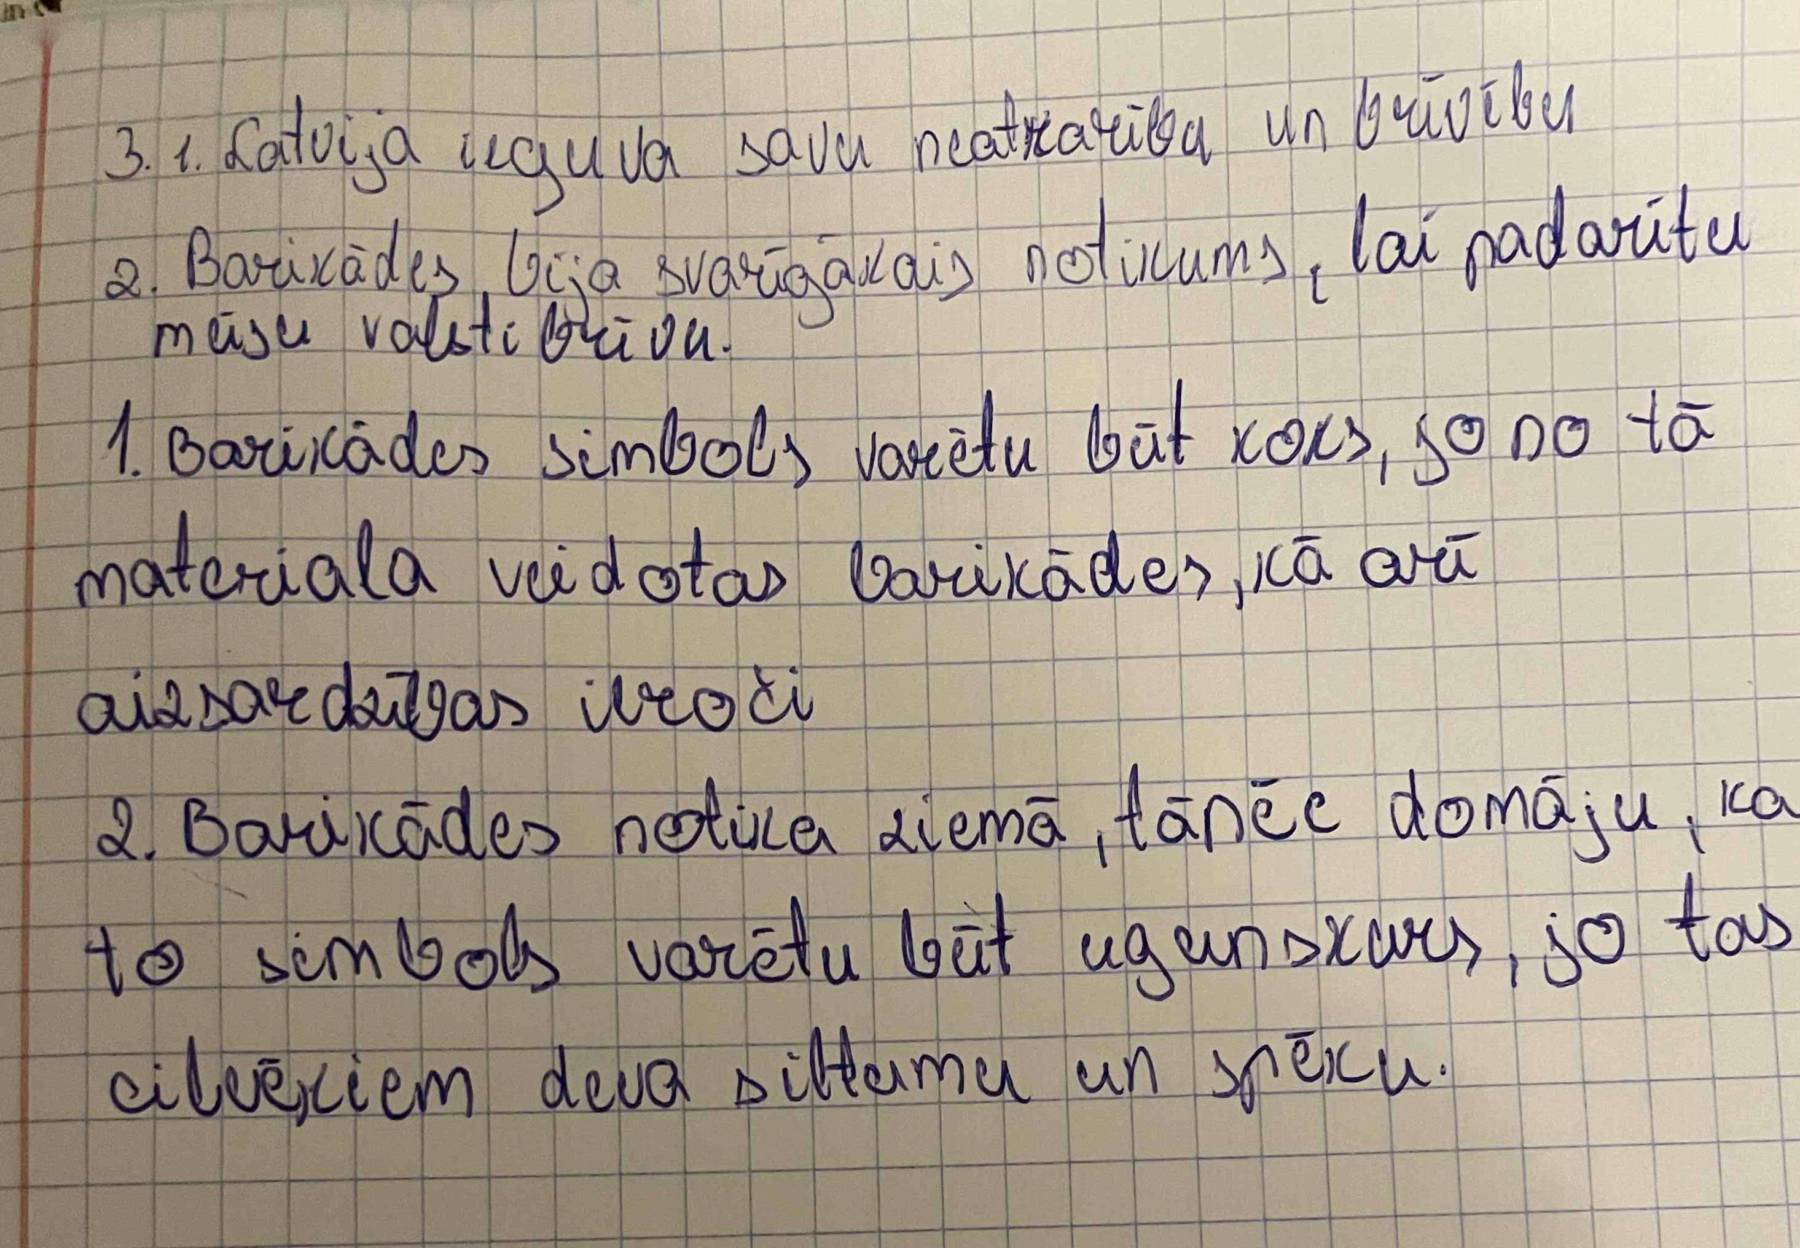 3. 1. Latvija ieguva savu neatkarību un brīvību
2. Barikādes bija svarīgākais notikums, lai padarītu
mūsu valsti brīvu.
1. Barikādes simbols varētu būt koks, jo no tā
materiala veidotas barikādes, kā arī
aizsardzības iroči
2. Barikādes notika ziemā, tāpēc domāju, ka
to simbols varētu būt ugunskurs, jo tas
cilvēkiem deva siltumu un spēku.